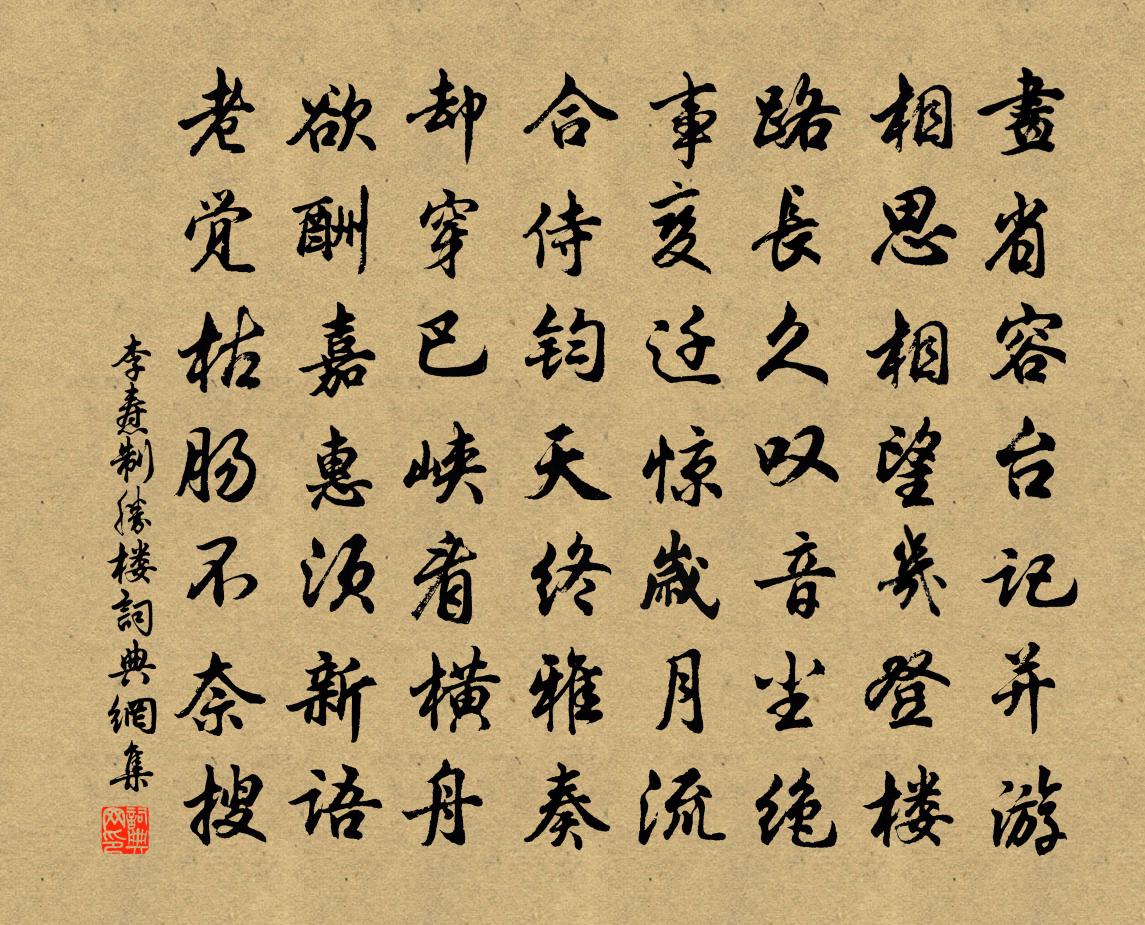 畫省容台记并游
相思相望几登楼
路長久叹音尘绝
事变迁惊歲月流
合侍钧天终雅奏
却穿巴峡看横舟
欲酬嘉惠须新语
老觉枯肠不奈搜
李焘制勝楼詞典網集